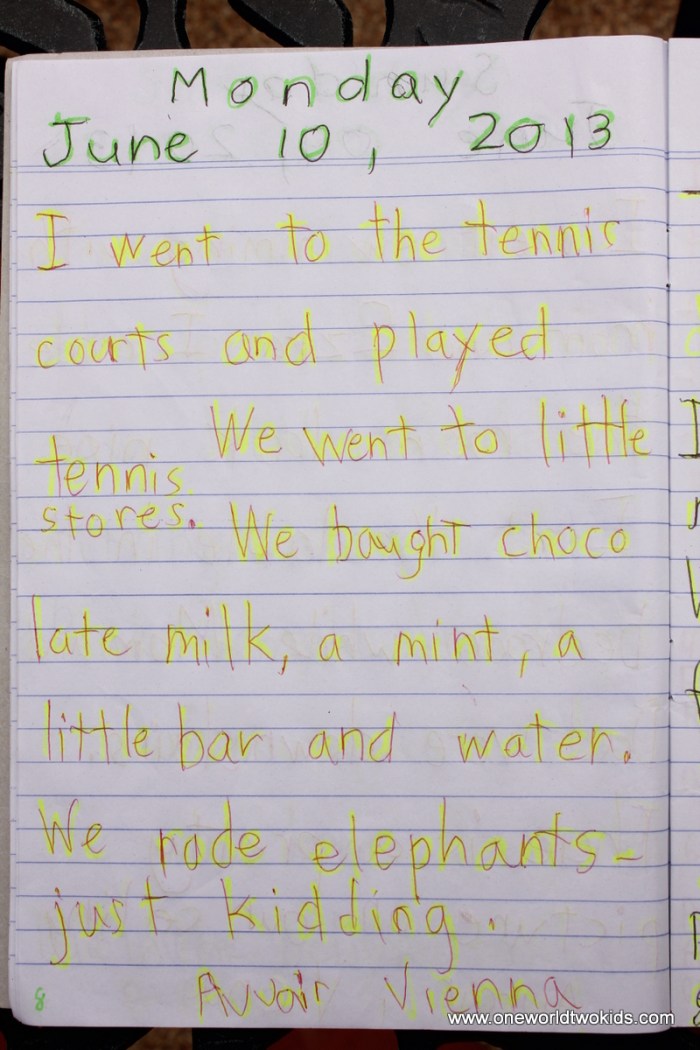 Monday
June 10, 2013
I went to the tennis
courts and played
tennis. We went to little
stores. We bought choco
late milk, a mint, a
little bar and water.
We rode elephants-
just kidding.
Auvoir Vienna
8
www.oneworldtwokids.com